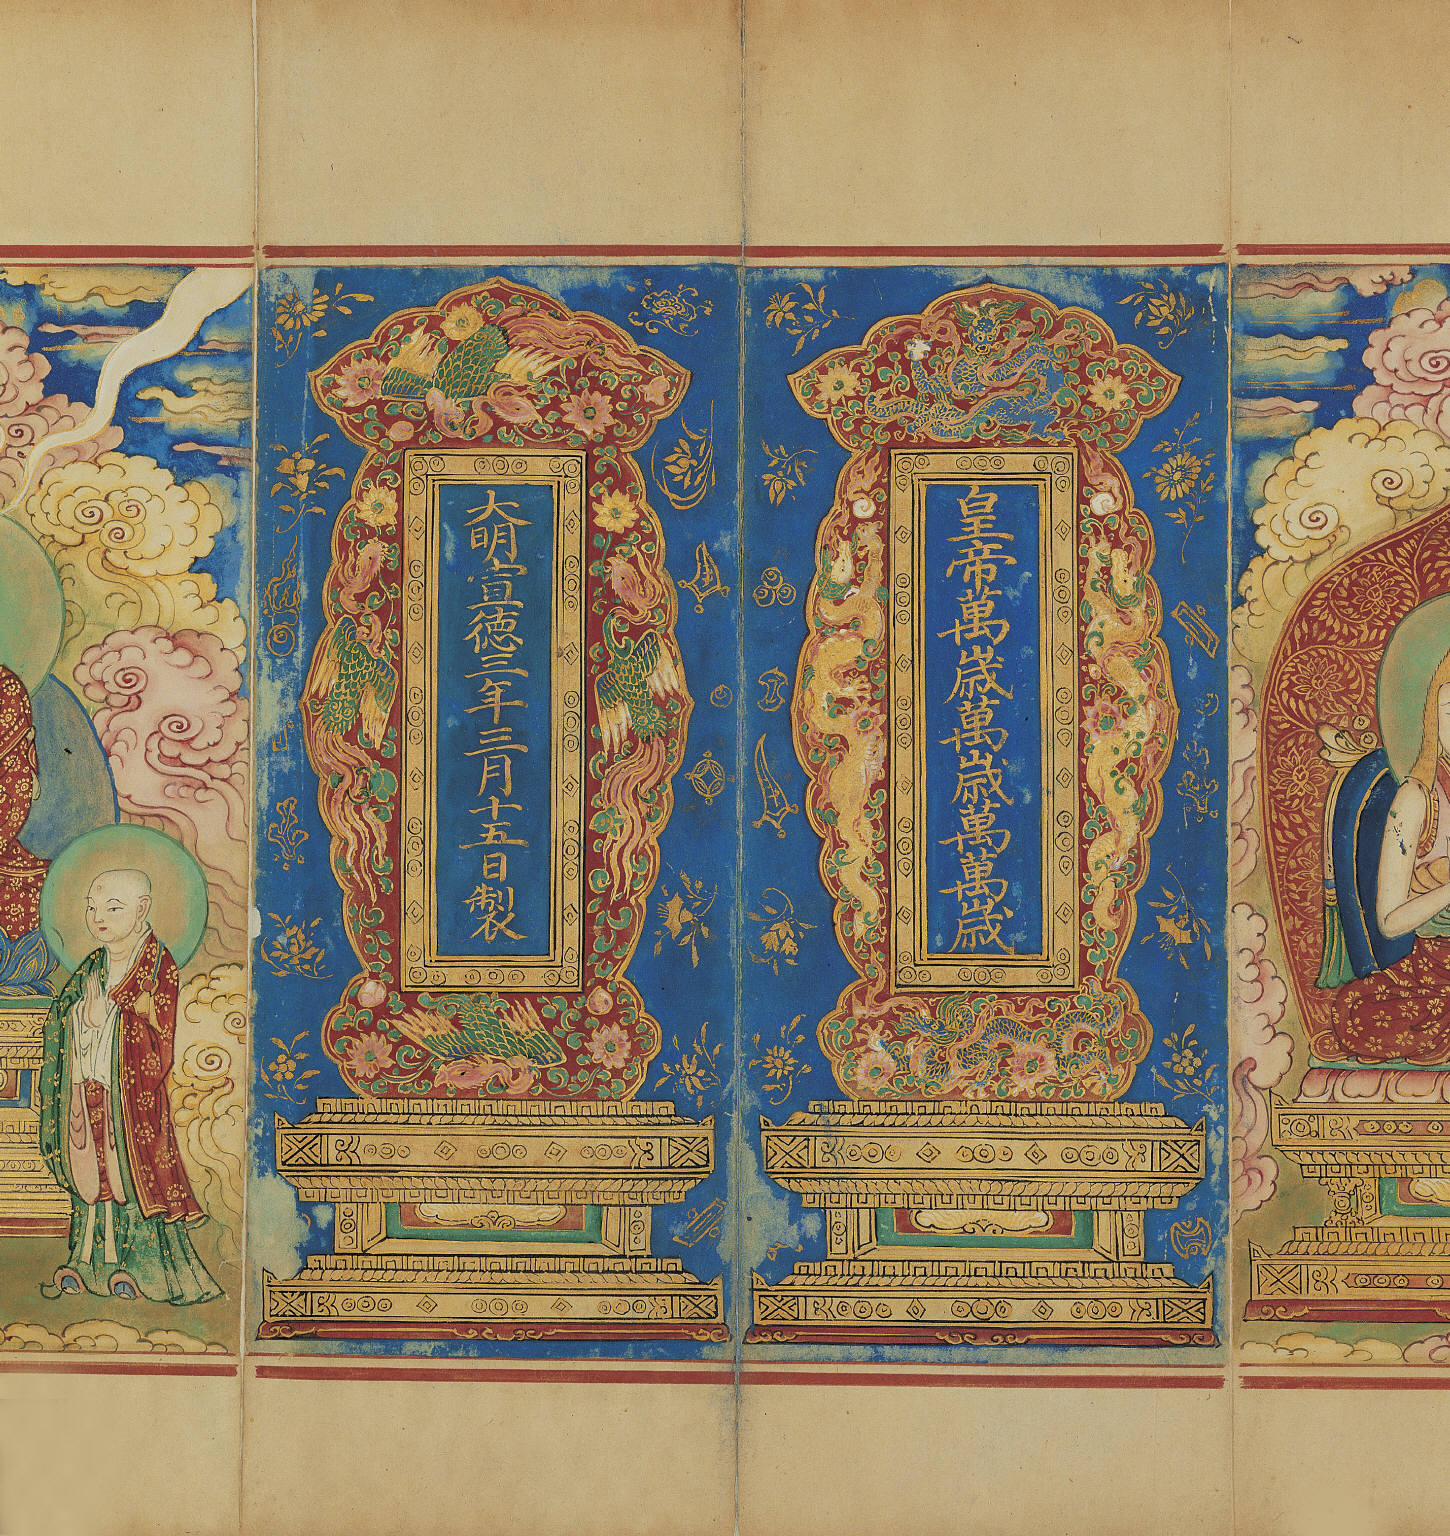 皇帝萬歲萬歲萬萬歲
大明宣德三年三月十五日製